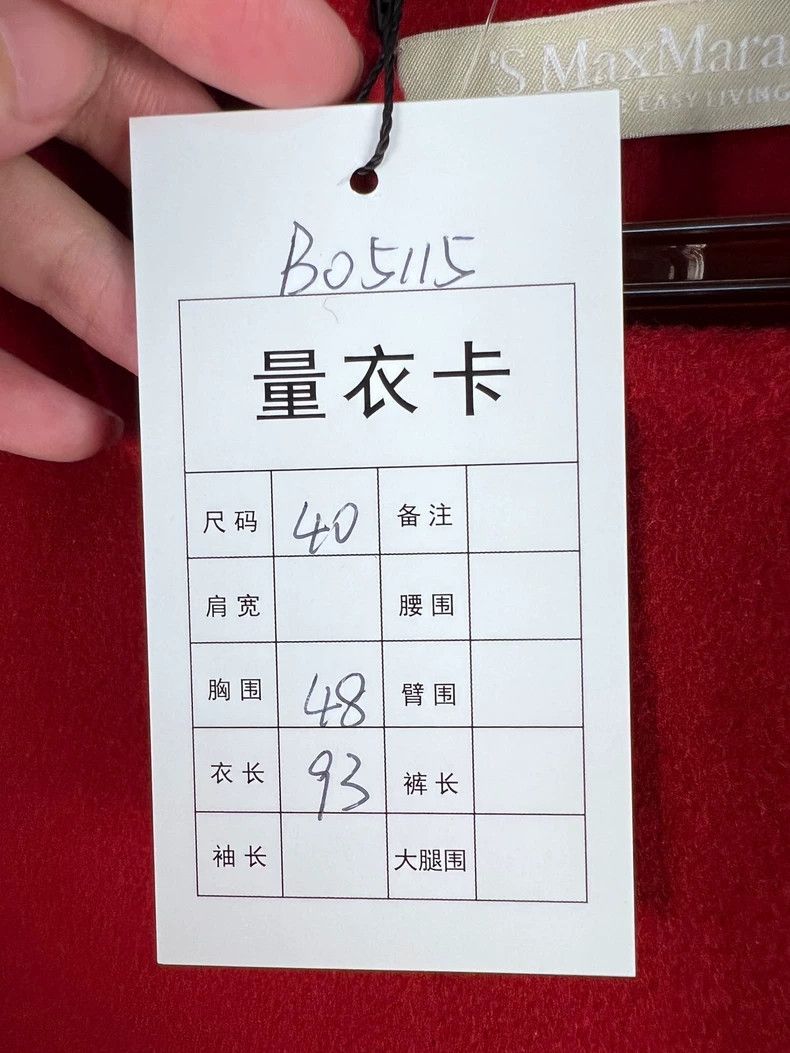 'S MaxMara
EASY LIVING
B05115
量衣卡
尺码 40 备注
肩宽 腰围
胸围 48 臂围
衣长 93 裤长
袖长 大腿围